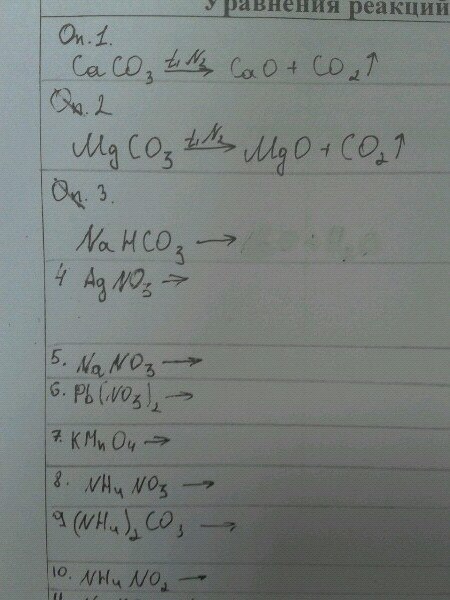 Уравнения реакций
Оп. 1.
CaCO₃ t, N₂ → CaO + CO₂↑
Оп. 2
MgCO₃ t, N₂ → MgO + CO₂↑
Оп. 3.
NaHCO₃ →
4 AgNO₃ →
5. NaNO₃ →
6. Pb(NO₃)₂ →
7. KMnO₄ →
8. NH₄NO₃ →
9 (NH₄)₂CO₃ →
10. NH₄NO₂ →